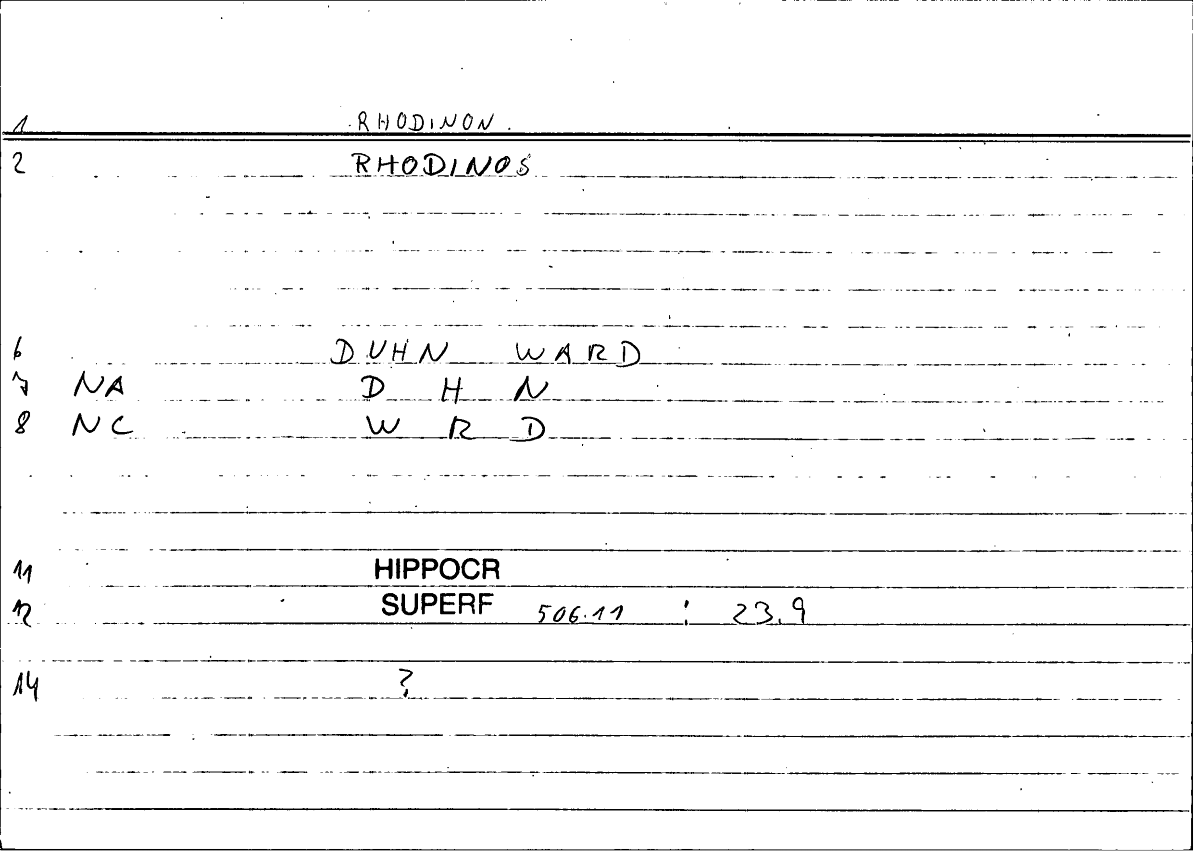 1 RHODINON
2 RHODINOS
6 DUHN WARD
7 NA D H N
8 NC W R D
11 HIPPOCR
12 SUPERF 506.11 : 23.9
14 ?